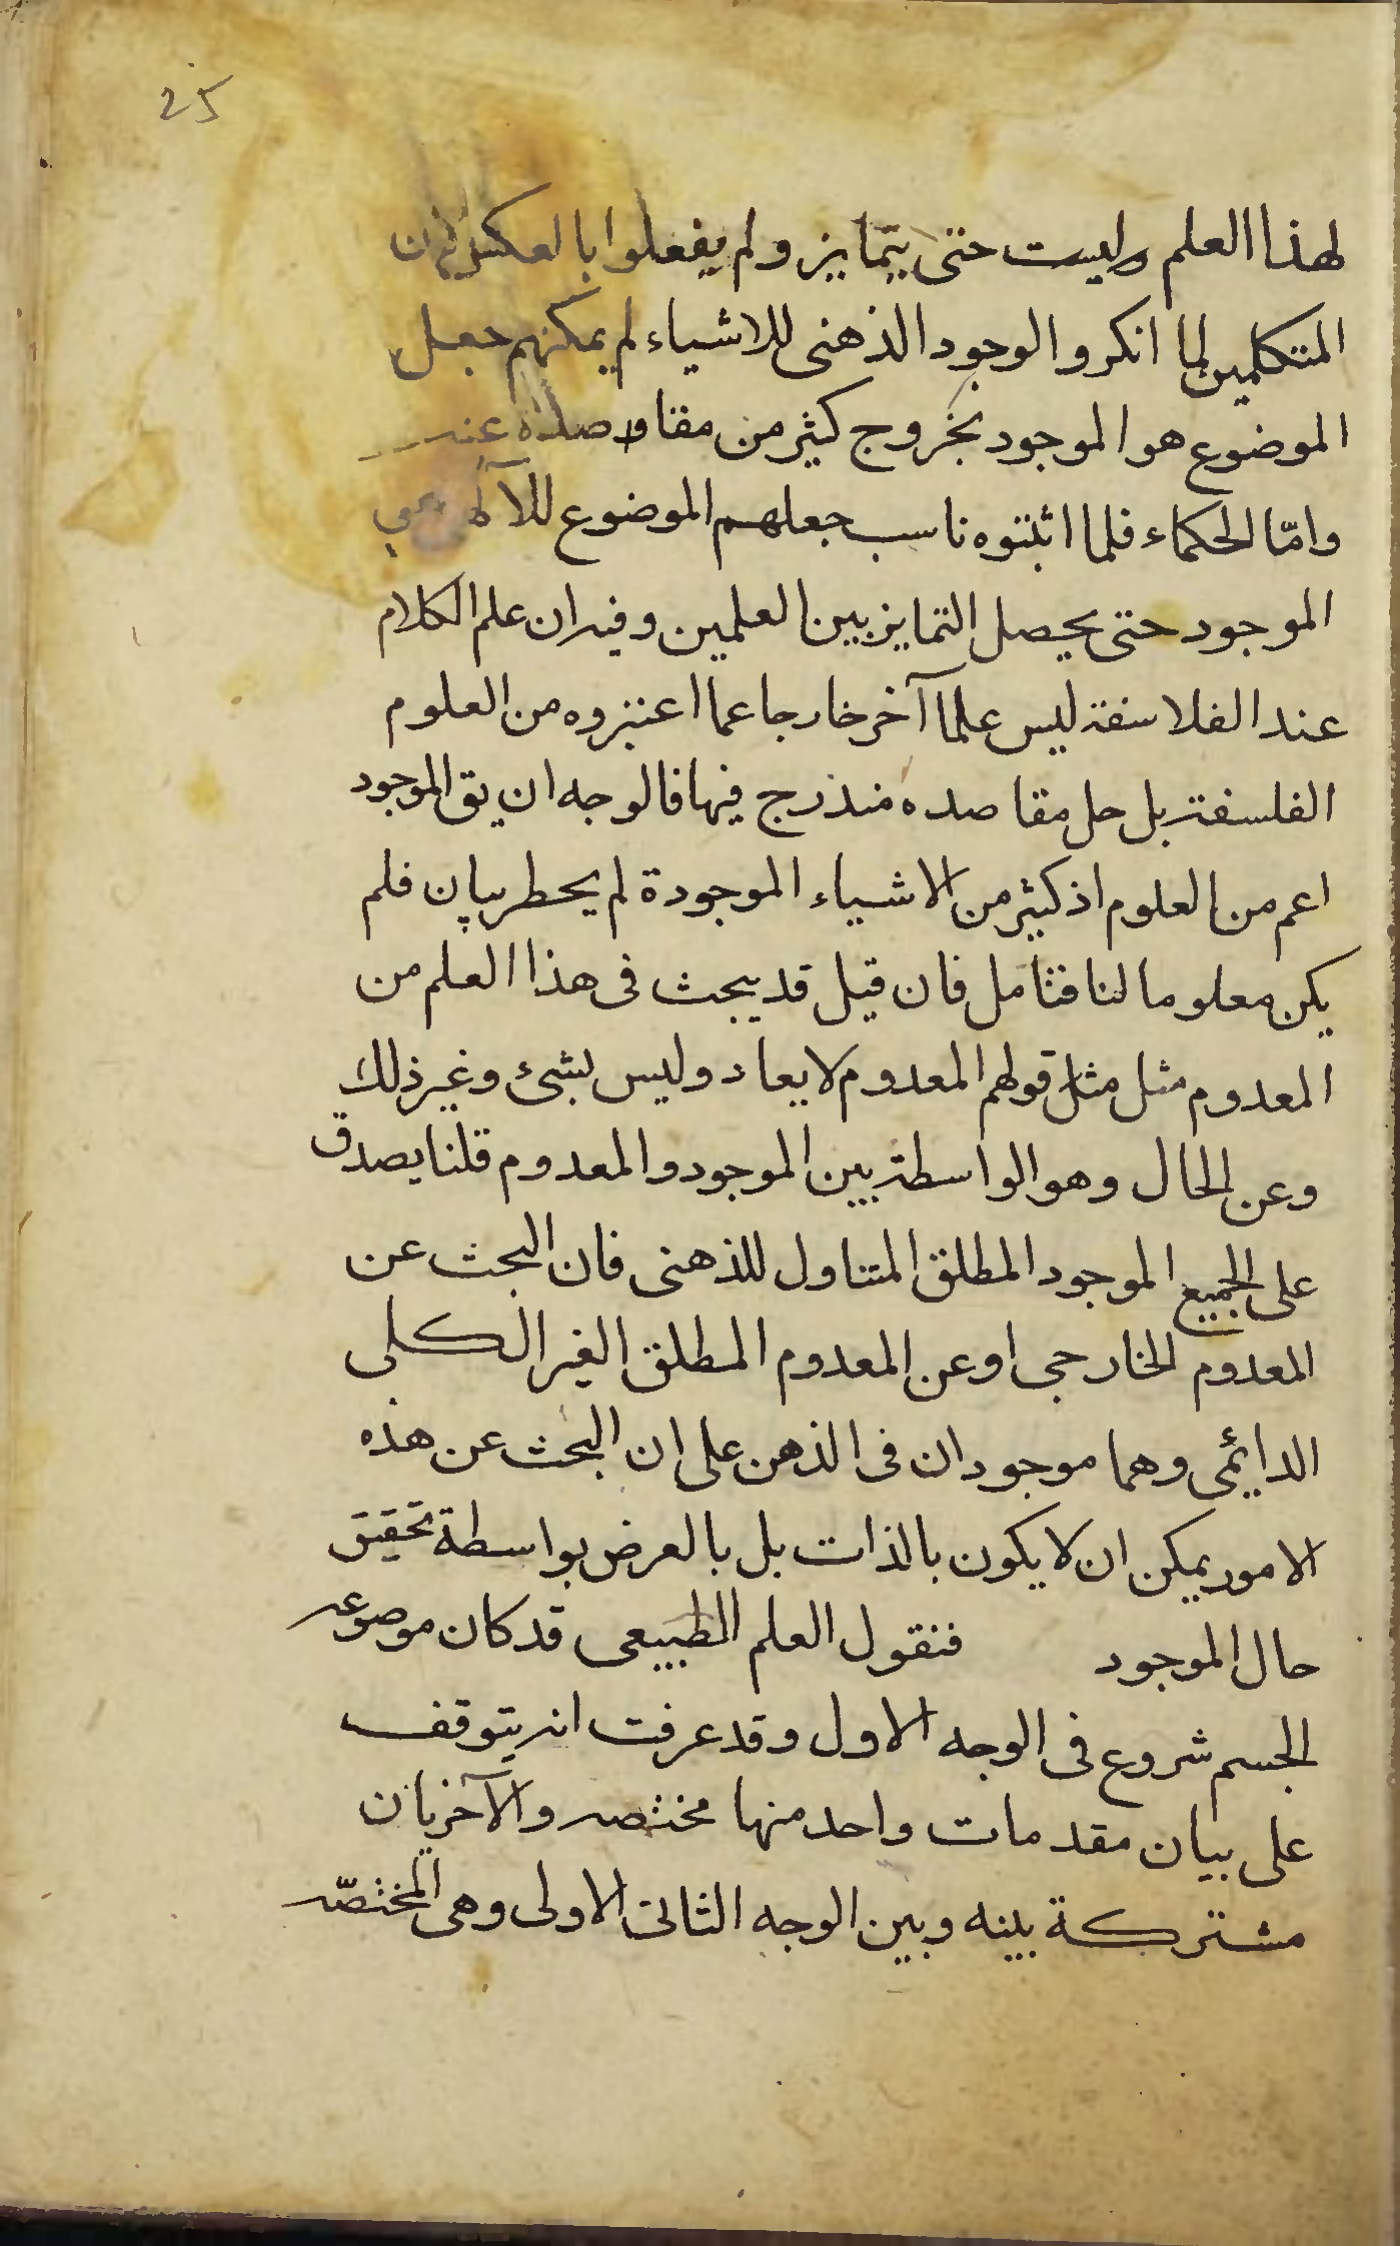 25
لهذا العلم وليست حتى يتمايز ولم يفعلوا بالعكس لان
المتكلمين لما انكروا الوجود الذهنى للاشياء لم يمكنهم جعل
الموضوع هو الموجود بخروج كثير من مقاصده عنه
وامّا الحكماء فلما اثبتوه ناسب جعلهم الموضوع للآلهى
الموجود حتى يحصل التمايز بين العلمين وفيه ان علم الكلام
عند الفلاسفة ليس علما آخر خارجا عما اعتبروه من العلوم
الفلسفة بل جل مقاصده مندرج فيها فالوجه ان يق الموجود
اعم من العلوم اذ كثير من الاشياء الموجودة لم يحطر ببان فلم
يكن معلوما لنا فتامل فان قيل قد يبحث فى هذا العلم من
المعدوم مثل مثل قولهم المعدوم لا يعاد وليس بشئ وغير ذلك
وعن الحال وهو الواسطة بين الموجود والمعدوم قلنا يصدق
على الجميع الموجود المطلق المتناول للذهنى فان البحث عن
المعدوم الخارجى او عن المعدوم المطلق الغير الكلى
الدايئمى وهما موجودان فى الذهن على ان البحث عن هذه
الامور يمكن ان لا يكون بالذات بل بالعرض بواسطة تحقيق
حال الموجود فنقول العلم الطبيعى قد كان موضوعه
الجسم شروع فى الوجه الاول وقد عرفت انه يتوقف
على بيان مقدمات واحد منها مختصه والآخريان
مشتركة بينه وبين الوجه الثانى الاولى وهى المختصّه